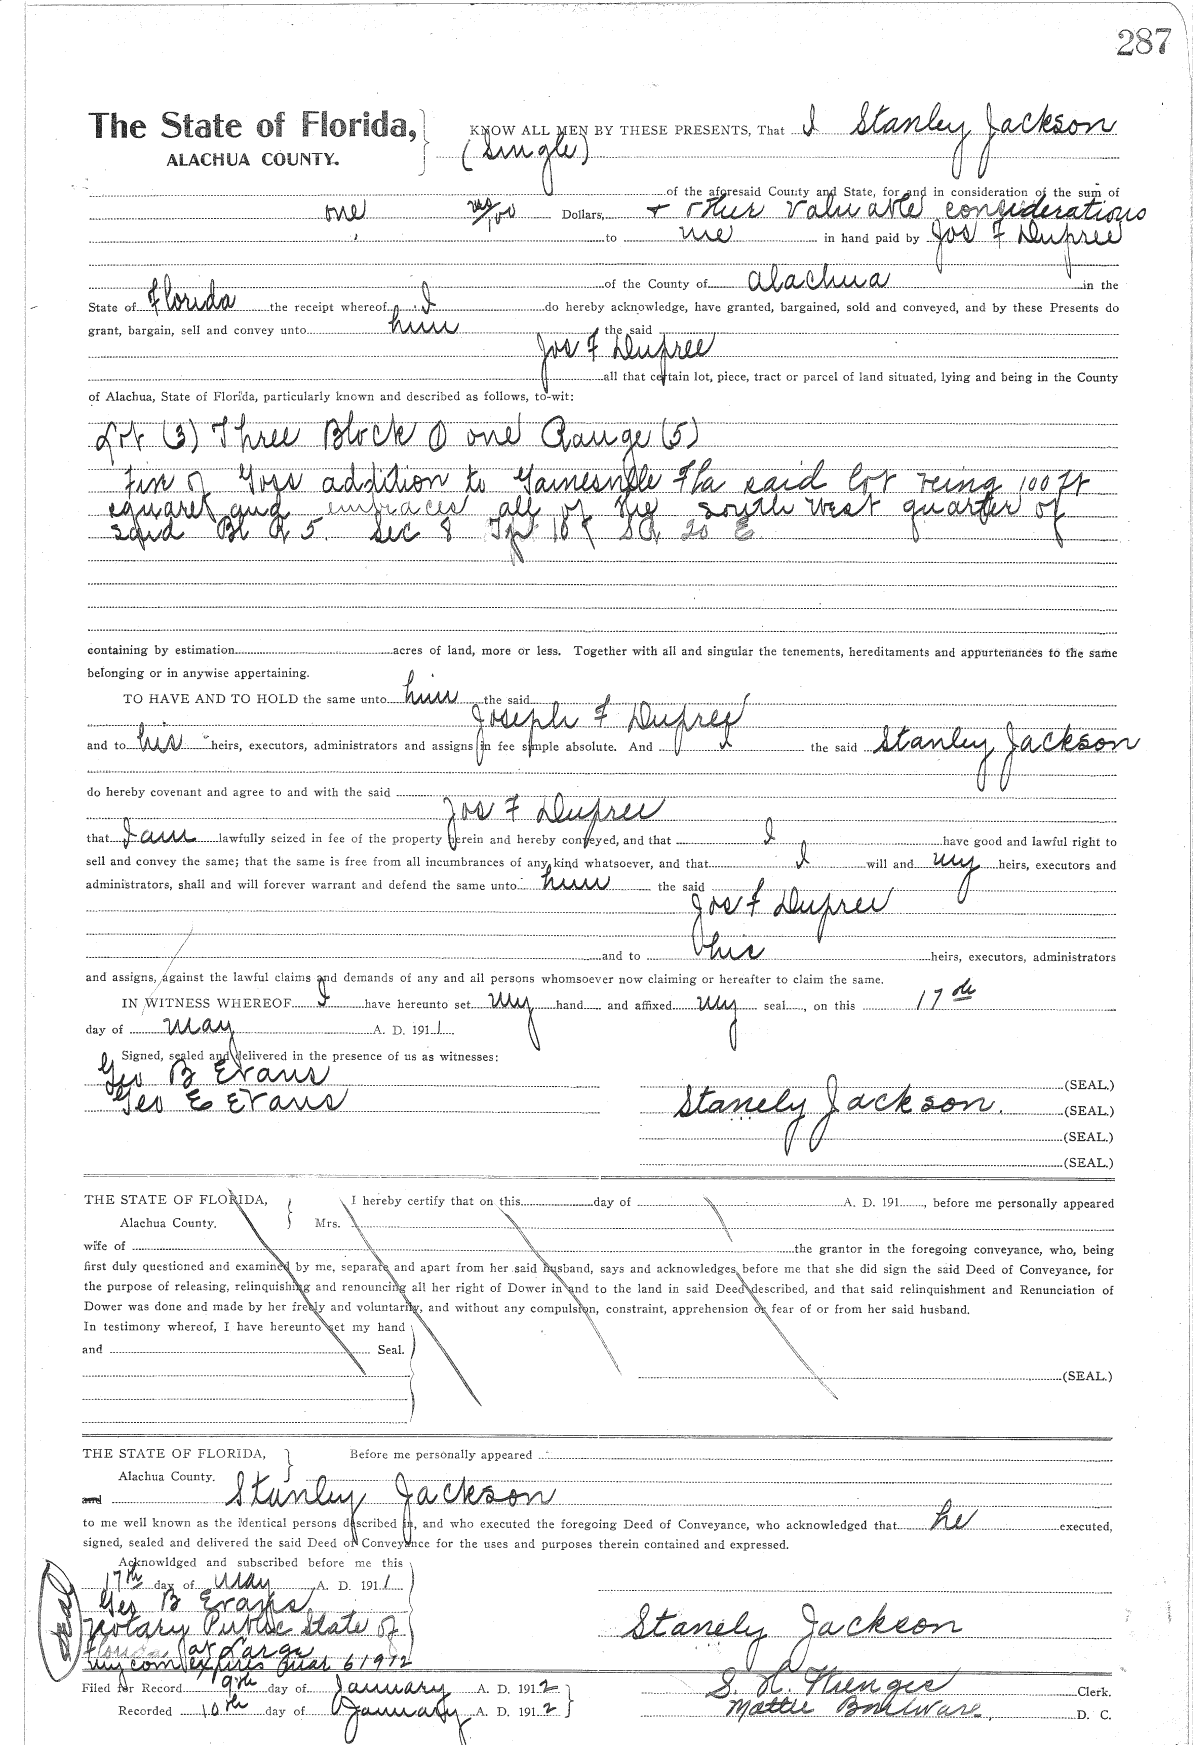 287
The State of Florida,
ALACHUA COUNTY.
KNOW ALL MEN BY THESE PRESENTS, That I Stanley Jackson
(Single)
of the aforesaid County and State, for and in consideration of the sum of
one no/00 Dollars, + other valuable considerations
to me in hand paid by Jos F Dupree
of the County of Alachua in the
State of Florida the receipt whereof I do hereby acknowledge, have granted, bargained, sold and conveyed, and by these Presents do
grant, bargain, sell and convey unto him the said
Jos F Dupree
all that certain lot, piece, tract or parcel of land situated, lying and being in the County
of Alachua, State of Florida, particularly known and described as follows, to-wit:
Lot (3) Three Block one Range (5)
addition to Gainesville Fla said lot being 100 ft
square and embraces all of the south west quarter of
said Bl R 5. Sec 8 Tp 10 S R 20 E
containing by estimation acres of land, more or less. Together with all and singular the tenements, hereditaments and appurtenances to the same
belonging or in anywise appertaining.
TO HAVE AND TO HOLD the same unto him the said
Joseph F Dupree
and to his heirs, executors, administrators and assigns in fee simple absolute. And I the said Stanley Jackson
do hereby covenant and agree to and with the said
Jos F Dupree
that I am lawfully seized in fee of the property herein and hereby conveyed, and that I have good and lawful right to
sell and convey the same; that the same is free from all incumbrances of any kind whatsoever, and that I will and my heirs, executors and
administrators, shall and will forever warrant and defend the same unto him the said
Jos F Dupree
and to his heirs, executors, administrators
and assigns, against the lawful claims and demands of any and all persons whomsoever now claiming or hereafter to claim the same.
IN WITNESS WHEREOF I have hereunto set my hand and affixed my seal, on this 17th
day of May A. D. 1911.
Signed, sealed and delivered in the presence of us as witnesses:
Geo B Evans
Geo E Evans
(SEAL.)
Stanely Jackson. (SEAL.)
(SEAL.)
(SEAL.)
THE STATE OF FLORIDA,
Alachua County.
I hereby certify that on this day of A. D. 191, before me personally appeared
Mrs.
wife of the grantor in the foregoing conveyance, who, being
first duly questioned and examined by me, separate and apart from her said husband, says and acknowledges before me that she did sign the said Deed of Conveyance, for
the purpose of releasing, relinquishing and renouncing all her right of Dower in and to the land in said Deed described, and that said relinquishment and Renunciation of
Dower was done and made by her freely and voluntarily, and without any compulsion, constraint, apprehension or fear of or from her said husband.
In testimony whereof, I have hereunto set my hand
and Seal.
(SEAL.)
THE STATE OF FLORIDA,
Alachua County.
Before me personally appeared
and Stanley Jackson
to me well known as the identical persons described in, and who executed the foregoing Deed of Conveyance, who acknowledged that he executed,
signed, sealed and delivered the said Deed of Conveyance for the uses and purposes therein contained and expressed.
Acknowldged and subscribed before me this
17th day of May A. D. 1911
Geo B Evans
Notary Public State of
Florida at Large
My com expires Mar 6 1912
Seal
Stanely Jackson
Filed for Record 9th day of January A. D. 1912
Recorded 10th day of January A. D. 1912
S. H. Wienges Clerk.
Mattie Boulware, D. C.